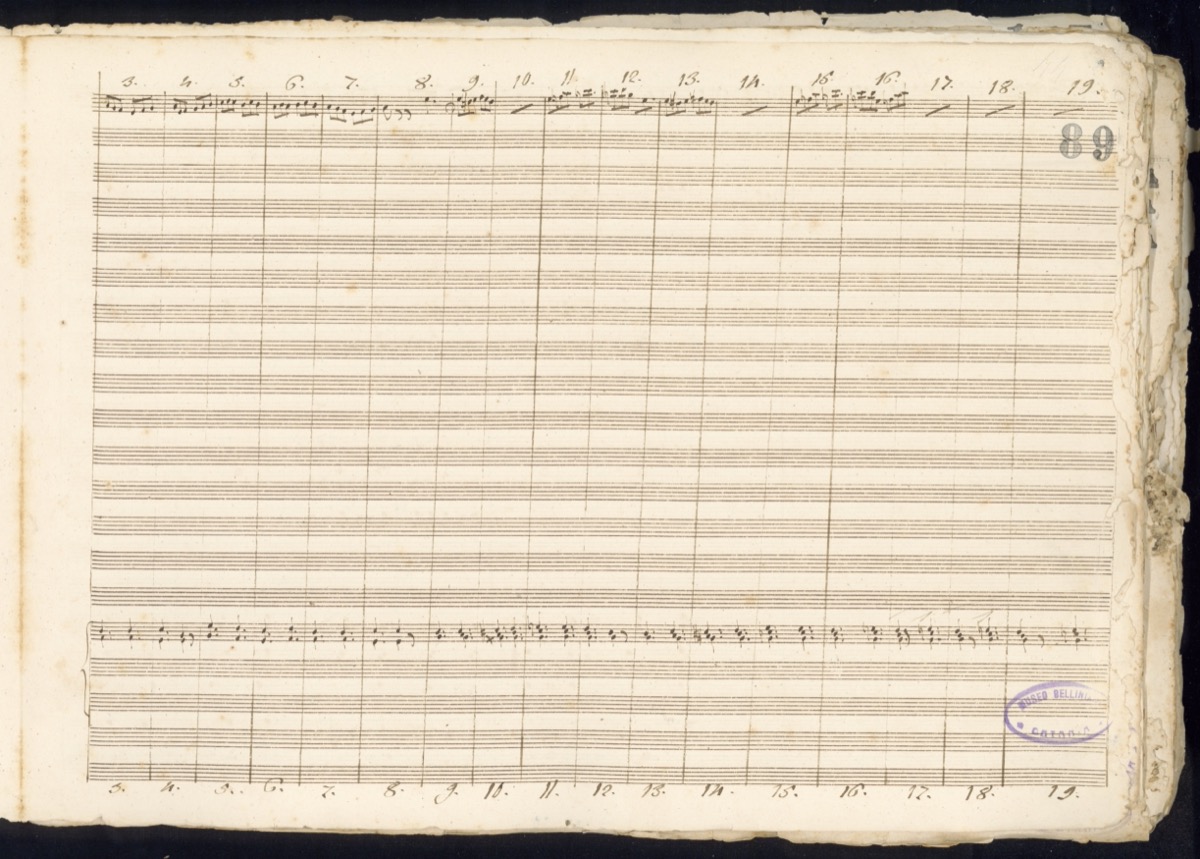 3. 4. 5. 6. 7. 8. 9. 10. 11. 12. 13. 14. 15. 16. 17. 18. 19.
89
MUSEO BELLINI
3. 4. 5. 6. 7. 8. 9. 10. 11. 12. 13. 14. 15. 16. 17. 18. 19.